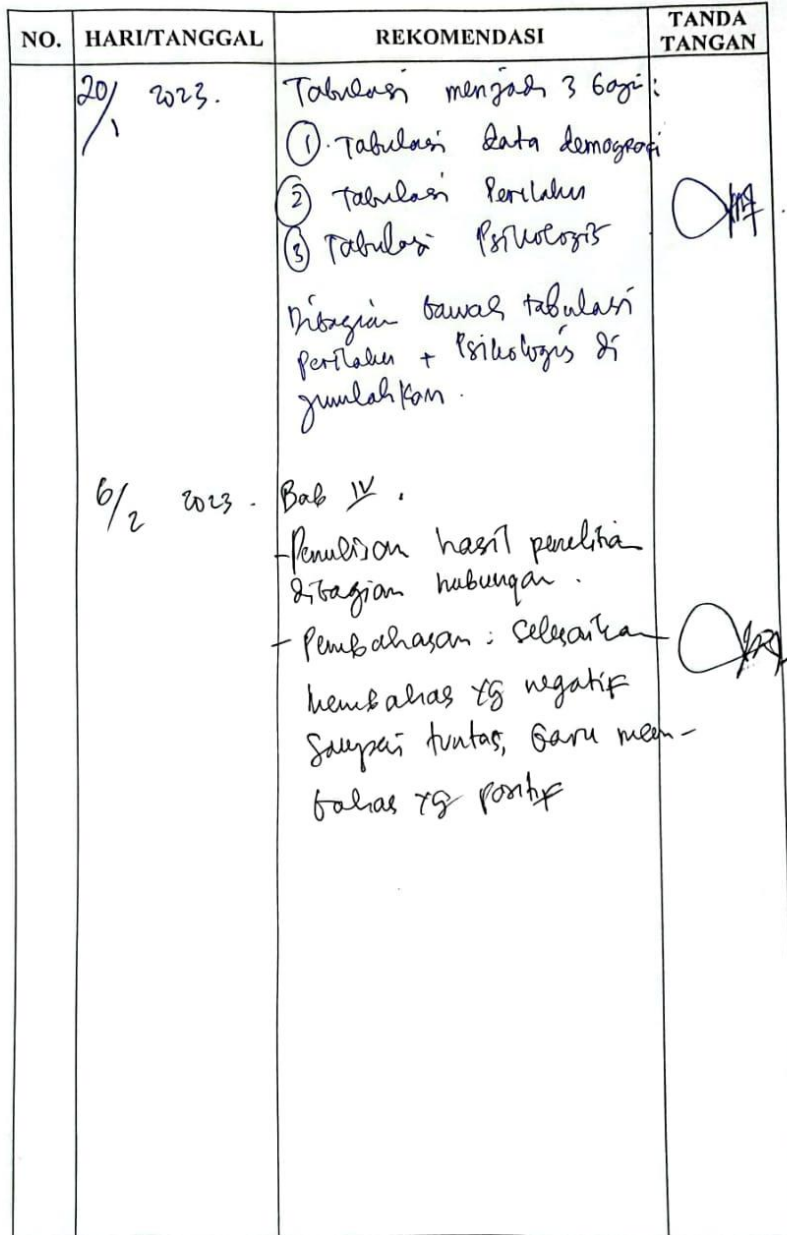 NO. HARI/TANGGAL REKOMENDASI TANDA TANGAN
20/1 2023. Tabulasi menjadi 3 bagi:
① Tabulasi data demografi
② Tabulasi Perilaku
③ Tabulasi Psikologis
Dibagian bawah tabulasi
Perilaku + Psikologis di
jumlahkan.
6/2 2023. Bab IV.
- Penulisan hasil penelitian
dibagian hubungan.
- Pembahasan : Selesaikan
membahas yg negatif
Sampai tuntas, baru mem-
bahas yg positif